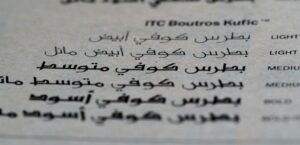 ITC Boutros Kufic™
بطرس كوفي أبيض LIGHT
بطرس كوفي أبيض مائل LIGHT
بطرس كوفي متوسط MEDIU
بطرس كوفي متوسط مائل MEDIU
بطرس كوفي أسود BOLD
بطرس كوفي أسود مائل